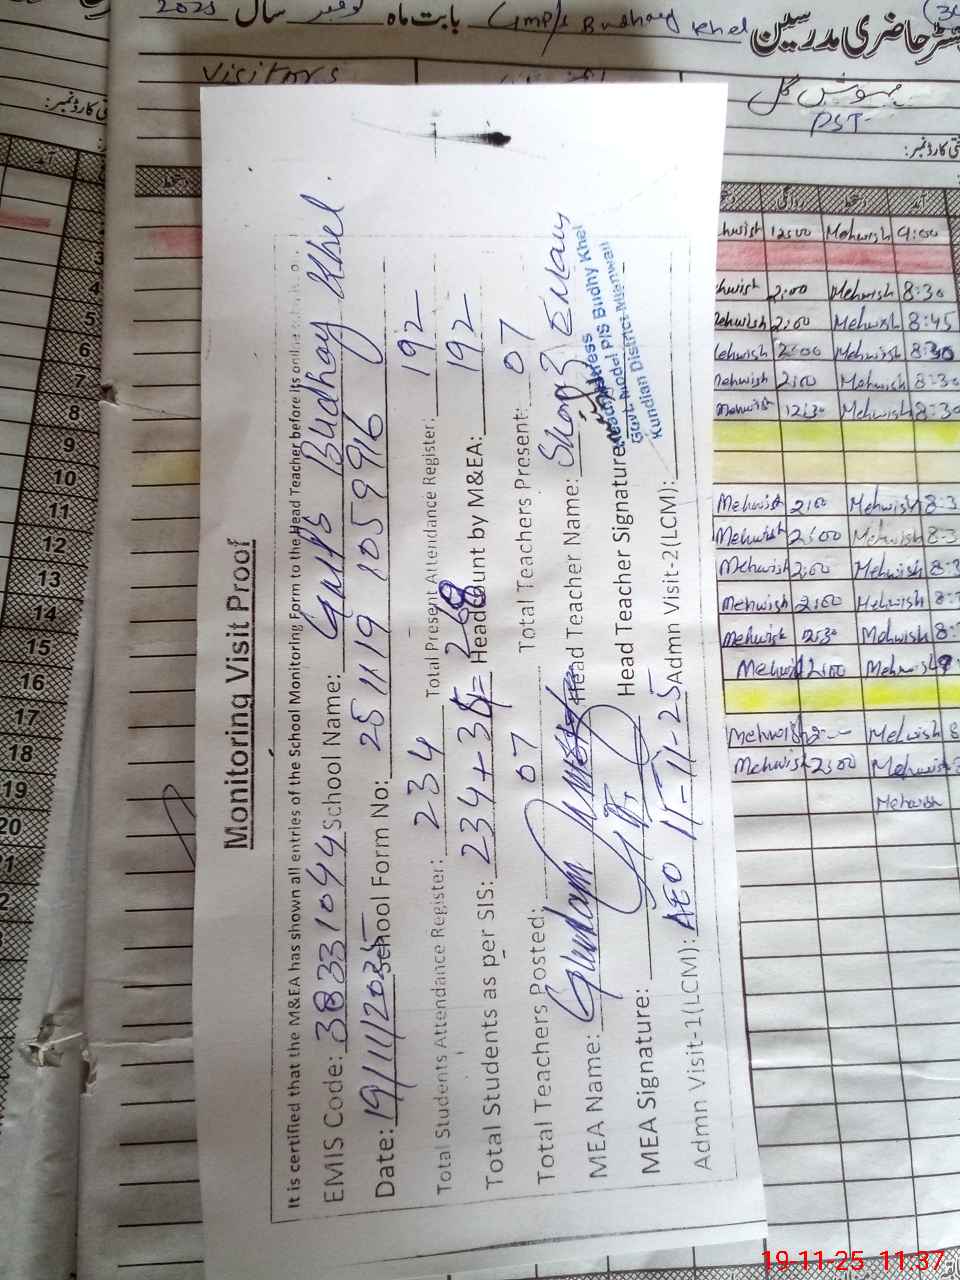 Monitoring Visit Proof
It is certified that the M&EA has shown all entries of the School Monitoring Form to the Head Teacher before its online
EMIS Code: 38331044 School Name: GMPS Budhay Khel
Date: 19/11/2025 School Form No: 25 11 19 105 9 916
Total Students Attendance Register: 234 Total Present Attendance Register: 192
Total Students as per SIS: 234+35= 268 Headcount by M&EA: 192
Total Teachers Posted: 07 Total Teachers Present: 07
MEA Name: Head Teacher Name:
MEA Signature: Head Teacher Signature
Headmistress
Govt. Model P/S Budhy Khel
Kundian District Mianwali
Admn Visit-1(LCM): AEO 11-11-25 Admn Visit-2(LCM):
رجسٹر حاضری مدرسین GMP/S Budhay Khel بابت ماہ نومبر سال 2025
Visitors
مہوش گل
PST
Mehwish 12:00 Mehwish 9:00
4 Mehwish 2:00 Mehwish 8:30
5 Mehwish 2:00 Mehwish 8:45
6 Mehwish 2:00 Mehwish 8:30
7 Mehwish 2:00 Mehwish 8:30
8 Mehwish 12:30 Mehwish 8:30
9
10
11 Mehwish 2:00 Mehwish 8:3
12 Mehwish 2:00 Mehwish 8:3
13 Mehwish 2:00 Mehwish 8:
14 Mehwish 2:00 Mehwish 8:
15 Mehwish 12:30 Mehwish 8:
16 Mehwish 2:00 Mehwish
17 Mehwish Mehwish 8
18 Mehwish 2:00 Mehwish
19 Mehwish
20
19-11-25 11:37